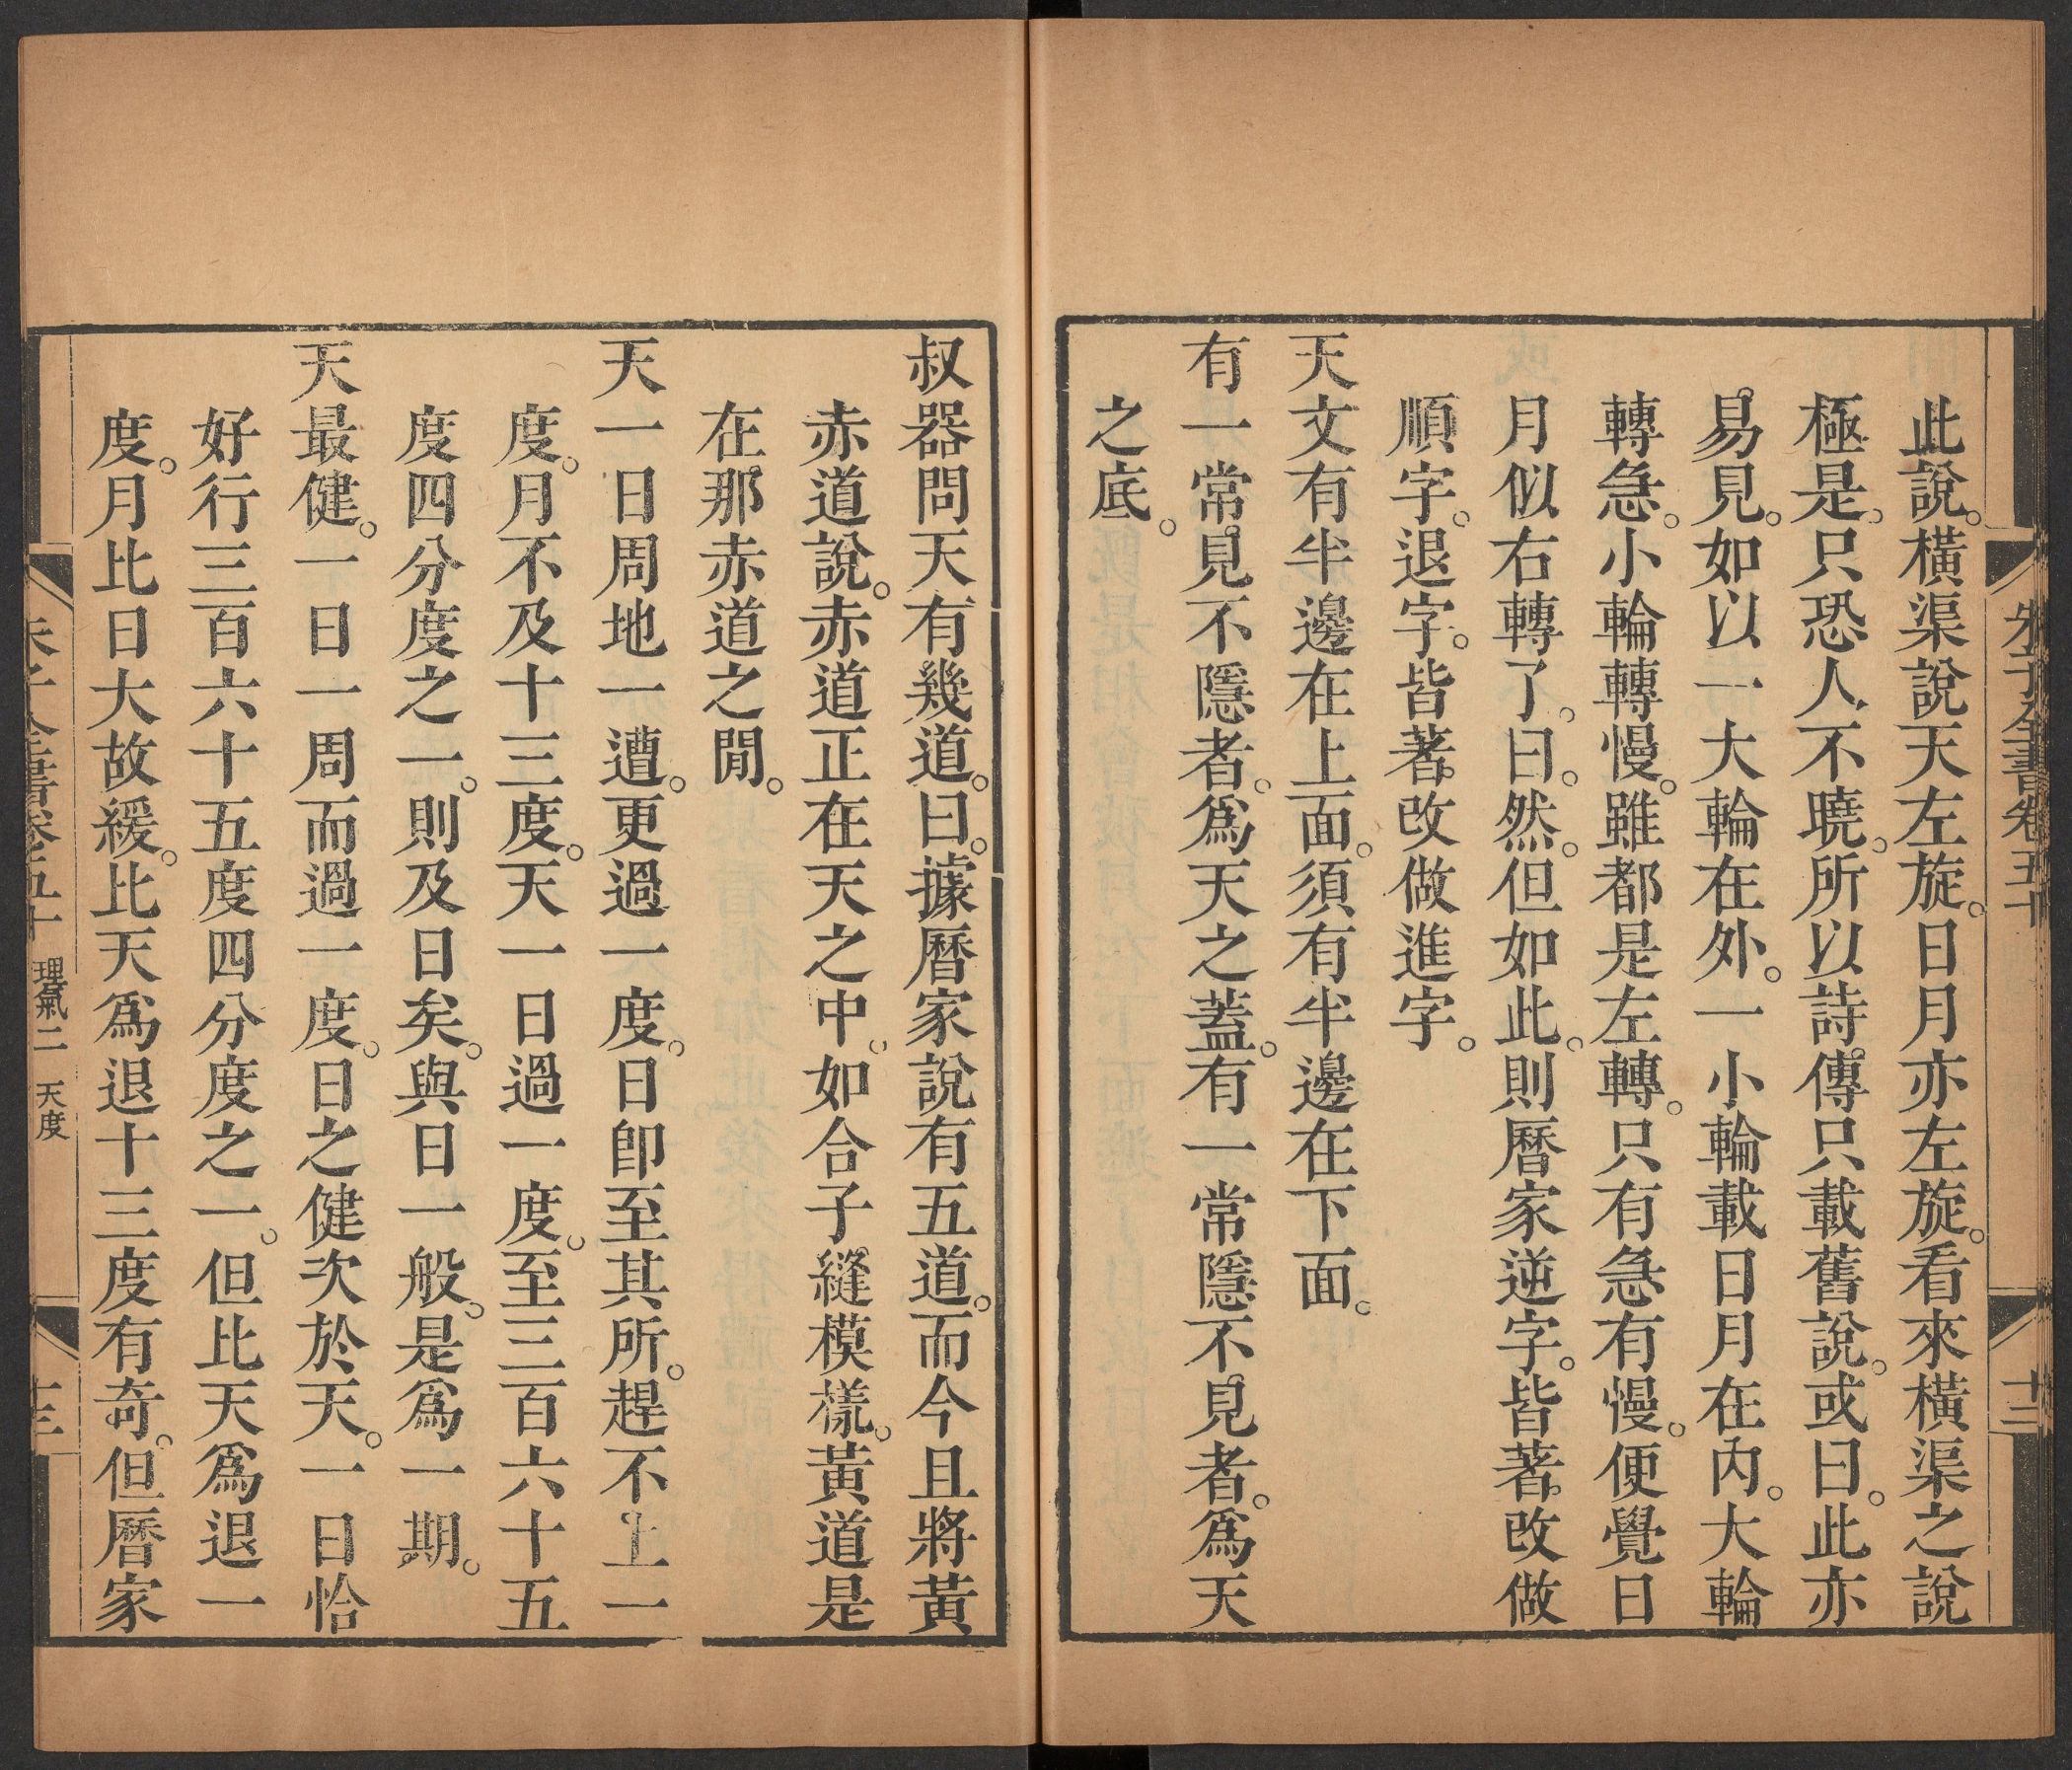 朱子全書卷五十
十二
此說。橫渠說天左旋。日月亦左旋。看來橫渠之說
極是。只恐人不曉。所以詩傳只載舊說。或曰。此亦
易見。如以一大輪在外。一小輪載日月在內。大輪
轉急。小輪轉慢。雖都是左轉。只有急有慢。便覺日
月似右轉了。曰。然。但如此。則曆家逆字。皆著改做
順字。退字。皆著改做進字。
天文有半邊在上面。須有半邊在下面。
有一常見不隱者。爲天之蓋。有一常隱不見者。爲天
之底。
叔器問天有幾道。曰。據曆家說有五道。而今且將黃
赤道說。赤道正在天之中。如合子縫模樣。黃道是
在那赤道之閒。
天一日周地一遭。更過一度。日卽至其所。趕不上一
度。月不及十三度。天一日過一度。至三百六十五
度四分度之一。則及日矣。與日一般。是爲一期。
天最健。一日一周而過一度。日之健次於天。一日恰
好行三百六十五度四分度之一。但比天爲退一
度。月比日大故緩。比天爲退十三度有奇。但曆家
朱子全書卷五十 理氣二 天度
十三